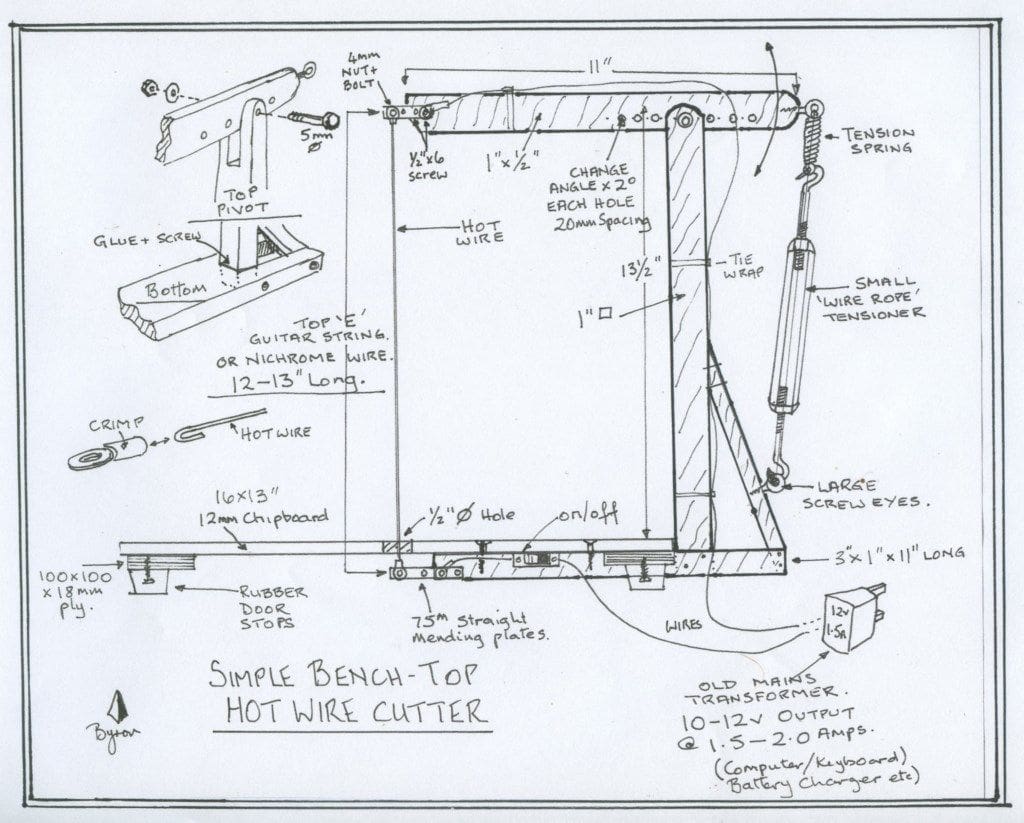 4mm
NUT +
BOLT
11"
5mm
Ø
½" x 6
screw
1" x ½"
CHANGE
ANGLE x 2°
EACH HOLE
20mm Spacing
TENSION
SPRING
TOP
PIVOT
GLUE + SCREW
Bottom
HOT
WIRE
13½"
TIE
WRAP
1" □
SMALL
'WIRE ROPE'
TENSIONER
TOP 'E'
GUITAR STRING.
OR NICHROME WIRE.
12-13" Long.
CRIMP
HOT WIRE
16x13"
12mm Chipboard
½" Ø Hole
on/off
LARGE
SCREW EYES.
3" x 1" x 11" LONG
100x100
x 18mm
ply.
RUBBER
DOOR
STOPS
75m Straight
Mending plates.
WIRES
12v
1.5A
SIMPLE BENCH-TOP
HOT WIRE CUTTER
Byron
OLD MAINS
TRANSFORMER.
10-12v OUTPUT
@ 1.5-2.0 AMPS.
(Computer/Keyboard)
Battery Charger etc)